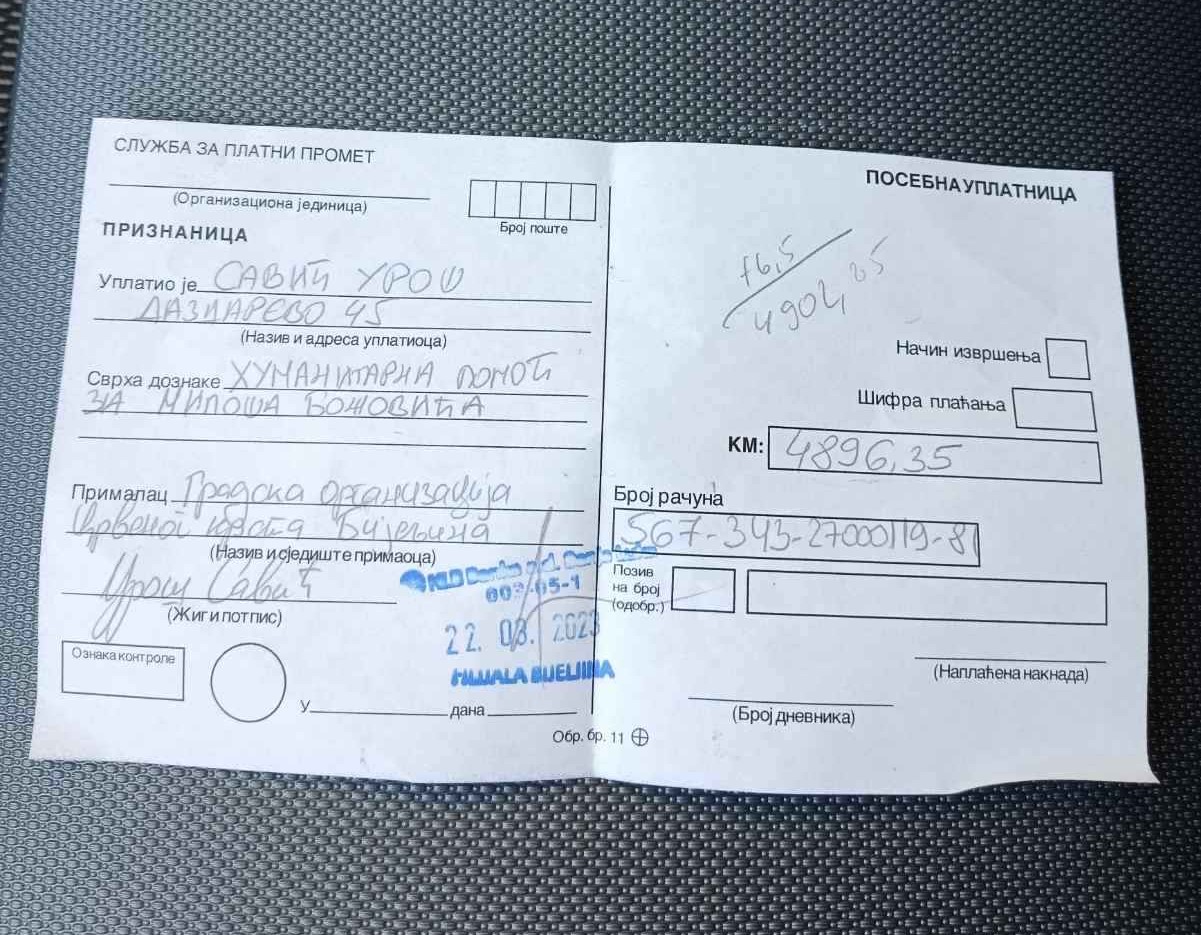 СЛУЖБА ЗА ПЛАТНИ ПРОМЕТ
(Организациона јединица)
Број поште
ПРИЗНАНИЦА
Уплатио је САВИЋ УРОШ
ЛАЗАРЕВО 45
(Назив и адреса уплатиоца)
Сврха дознаке ХУМАНИТАРНА ПОМОЋ
ЗА МИЛОША БОЖОВИЋА
Прималац Градска организација
Црвеног крста Бијељина
(Назив и сједиште примаоца)
Урош Савић
(Жиг и потпис)
Ознака контроле
У дана
003-05-1
22. 08. 2023
FILIJALA BIJELJINA
Обр. бр. 11
ПОСЕБНА УПЛАТНИЦА
f6,5
4902,85
Начин извршења
Шифра плаћања
КМ: 4896,35
Број рачуна
567-343-27000119-81
Позив
на број
(одобр.)
(Наплаћена накнада)
(Број дневника)